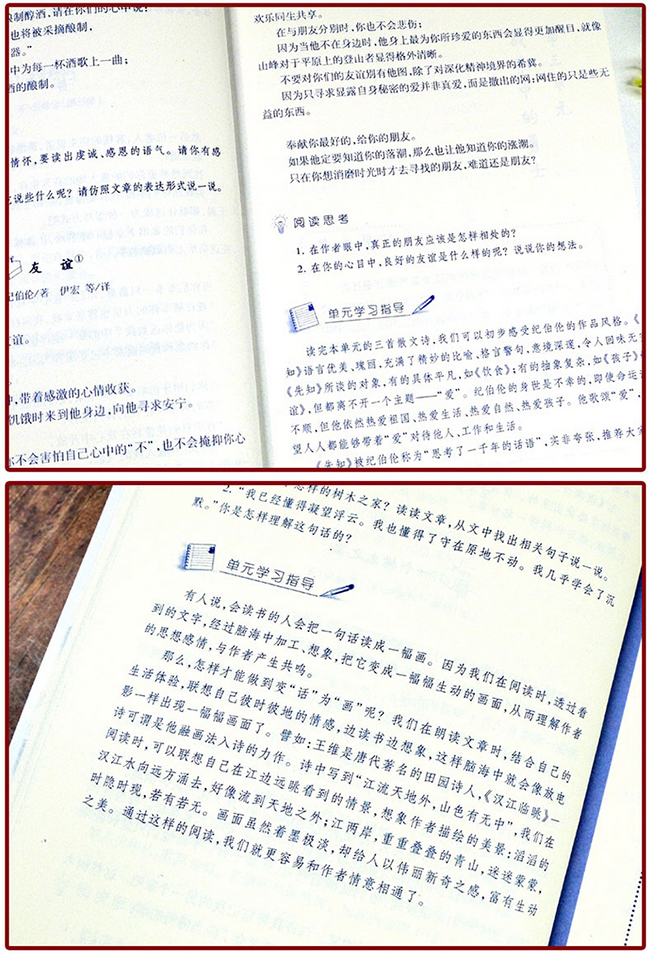 酿制醇酒，请在你们的心中说：
也将被采摘酿制，
器。”
中为每一杯酒歌上一曲；
酒的酿制。
情怀，要读出虔诚、感恩的语气。请你有感
说些什么呢？请仿照文章的表达形式说一说。
友谊①
纪伯伦/著 伊宏 等/译
友谊。
，带着感激的心情收获。
饥饿时来到他身边，向他寻求安宁。
你不会害怕自己心中的“不”，也不会掩抑你心
欢乐同生共享。
在与朋友分别时，你也不会悲伤；
因为当他不在身边时，他身上最为你所珍爱的东西会显得更加醒目，就像
山峰对于平原上的登山者显得格外清晰。
不要对你们的友谊别有他图，除了对深化精神境界的希冀。
因为只寻求显露自身秘密的爱并非真爱，而是撒出的网；网住的只是些无
益的东西。
奉献你最好的，给你的朋友。
如果他定要知道你的落潮，那么也让他知道你的涨潮。
只在你想消磨时光时才去寻找的朋友，难道还是朋友？
阅读思考
1. 在作者眼中，真正的朋友应该是怎样相处的？
2. 在你的心目中，良好的友谊是什么样的呢？说说你的想法。
单元学习指导
读完本单元的三首散文诗，我们可以初步感受纪伯伦的作品风格。《
知》语言优美、瑰丽，充满了精妙的比喻、格言警句，意境深邃，令人回味无
《先知》所谈的对象，有的具体平凡，如《饮食》；有的抽象复杂，如《孩子》
谊》，但都离不开一个主题——“爱”。纪伯伦的身世是不幸的，即使命运
不顺，但他依然热爱祖国、热爱生活、热爱自然、热爱孩子。他歌颂“爱”，
望人人都能够带着“爱”对待他人、工作和生活。
《先知》被纪伯伦称为“思考了一千年的话语”，实非夸张，推荐大家
怎样的树木之家？读读文章，从文中找出相关句子说一说。
2. “我已经懂得凝望浮云。我也懂得了守在原地不动。我几乎学会了沉
默。”你是怎样理解这句话的？
单元学习指导
有人说，会读书的人会把一句话读成一幅画。因为我们在阅读时，透过看
到的文字，经过脑海中加工、想象，把它变成一幅幅生动的画面，从而理解作者
的思想感情，与作者产生共鸣。
那么，怎样才能做到变“话”为“画”呢？我们在朗读文章时，结合自己的
生活体验，联想自己彼时彼地的情感，边读书边想象，这样脑海中就会像放电
影一样出现一幅幅画面了。譬如：王维是唐代著名的田园诗人，《汉江临眺》一
诗可谓是他融画法入诗的力作。诗中写到“江流天地外，山色有无中”，我们在
阅读时，可以联想自己在江边远眺看到的情景，想象作者描绘的美景：滔滔的
汉江水向远方涌去，好像流到天地之外；江两岸，重重叠叠的青山，迷迷蒙蒙，
时隐时现，若有若无。画面虽然着墨极淡，却给人以伟丽新奇之感，富有生动
之美。通过这样的阅读，我们就更容易和作者情意相通了。